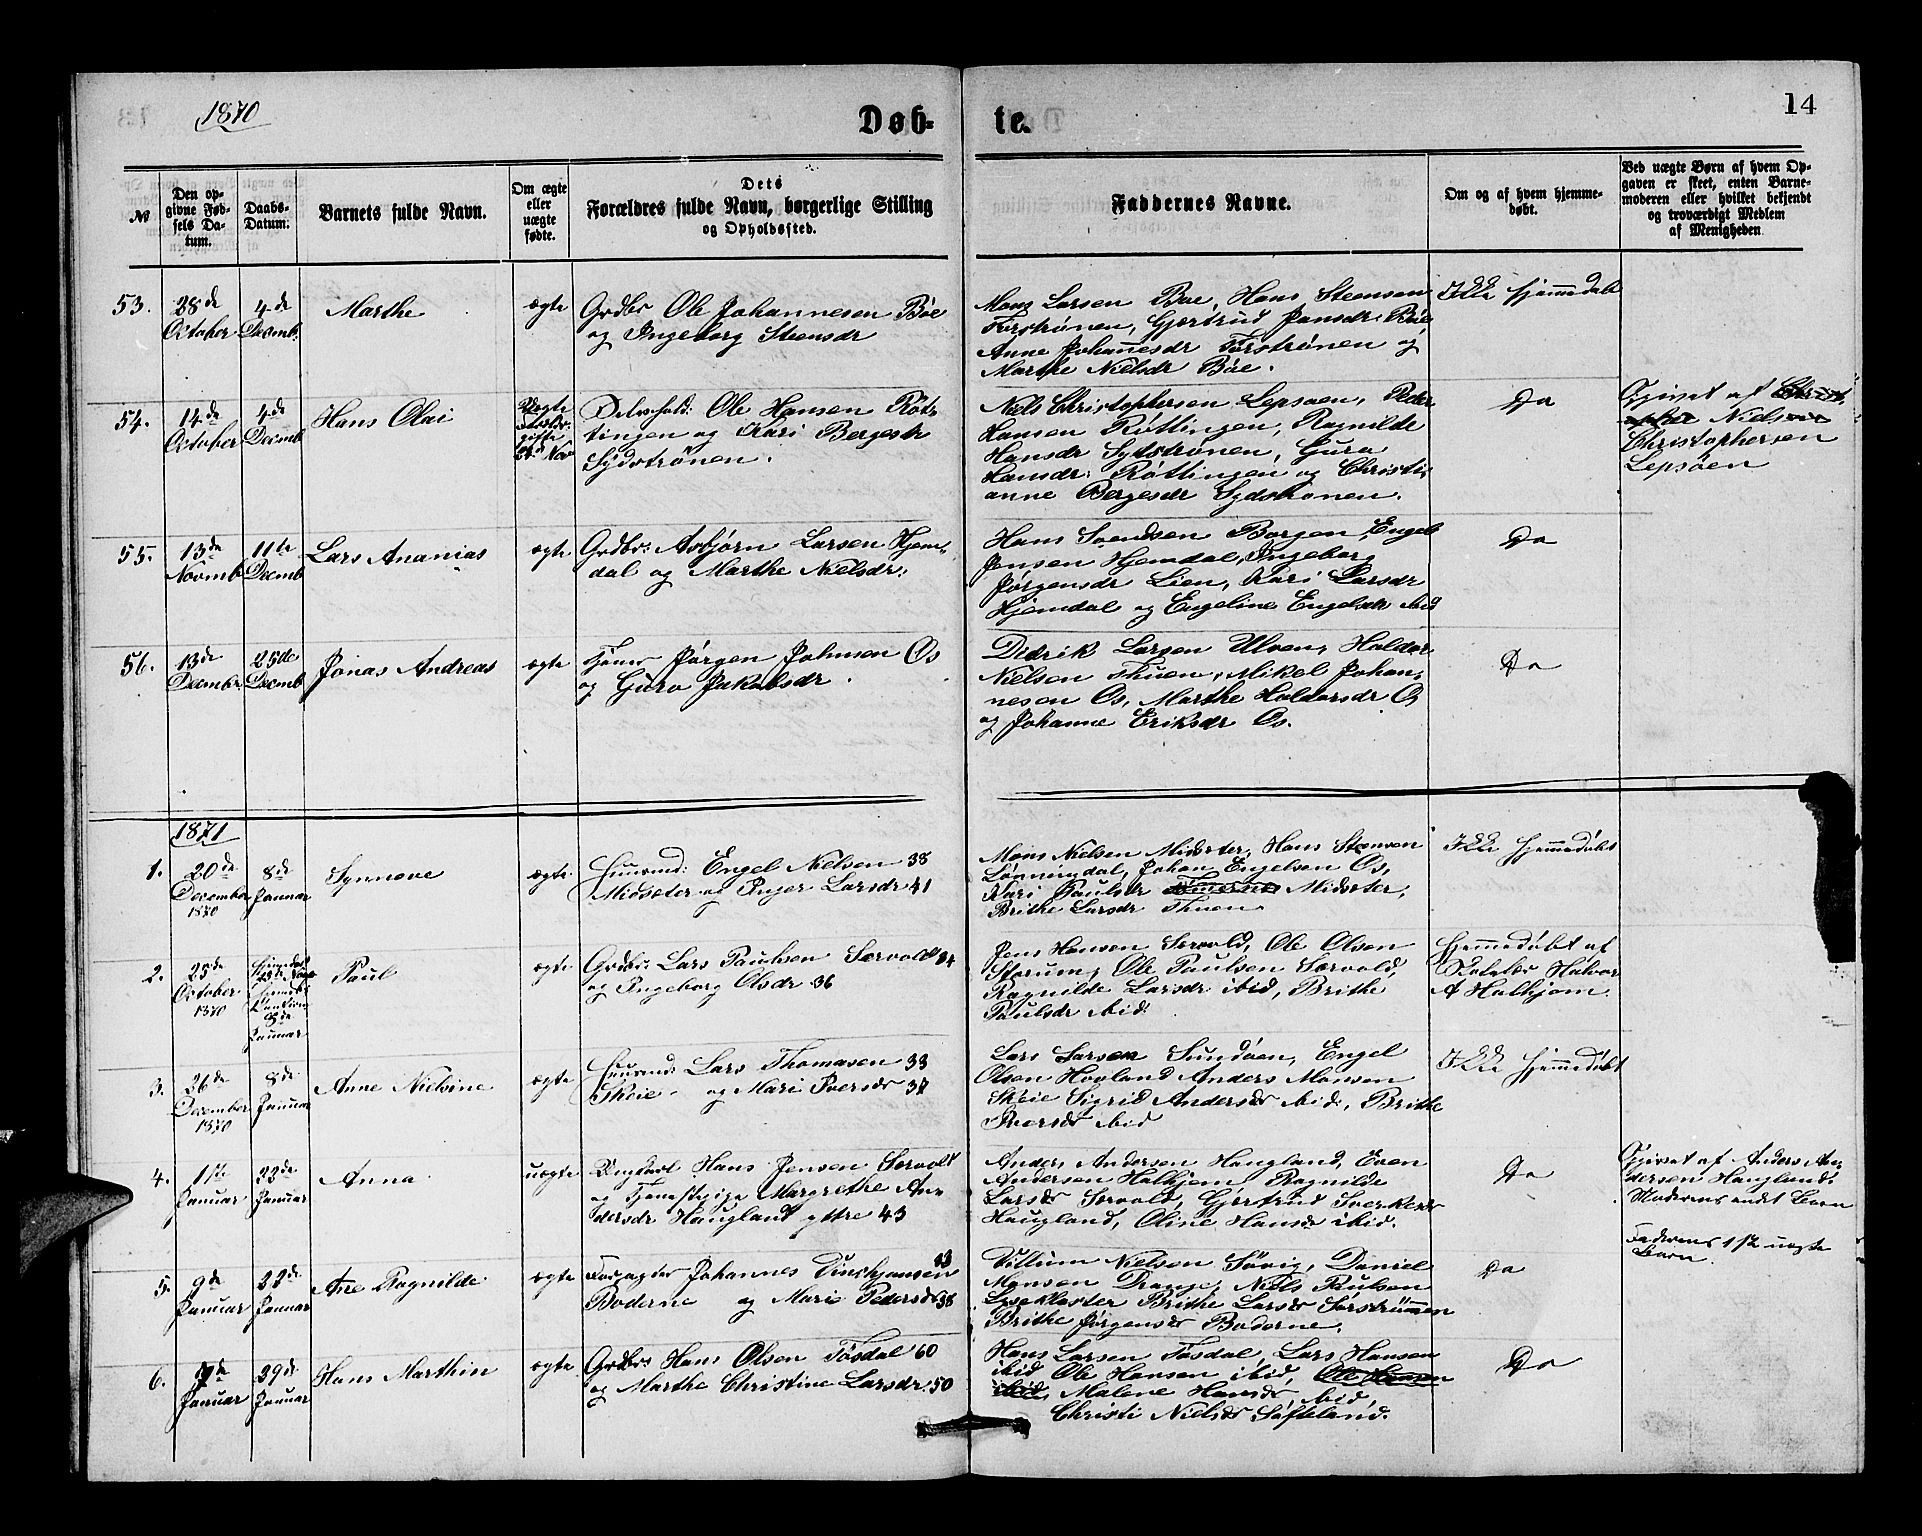 1870
Døb-
te.
14
№
Den op-
givne Fød-
sels Da-
tum.
Daabs-
Datum.
Barnets fulde Navn.
Om ægte
eller
uægte
fødte.
Dets
Forældres fulde Navn, borgerlige Stilling
og Opholdssted.
Faddernes Navne.
Om og af hvem hjemme-
døbt.
Ved uægte Børn af hvem Op-
gaven er skeet, enten Barne-
moderen eller hvilket bekjendt
og troværdigt Medlem
af Menigheden
53.
28de
October
4de
Decemb.
Marthe
ægte
Grdbr Ole Johannesen Bøe
og Ingeborg Steensdr
Mons Larsen Bøe, Hans Steensen
Førstrønen, Gjertrud Jansdr Bøe
Anne Johanesdr Førstrønen og
Marthe Nielsdr Bøe.
Ikke hjemmedøbt
54.
14de
October
4de
Decemb
Hans Olai
Uægte
gifte
Nov
Selvehold: Ole Hansen Røt-
tingen og Kari Bergesdr
Sydstrønen.
Niels Christophersen Lepsøen, Peder
Hansen Røttingen, Ragnilde
Hansdr Sydstrønen, Guro
Hansdr: Røttingen og Christi-
anne Bergesdr Sydstrønen.
Do
Opivet af Christ-
opher Nielsen
Christophersen
Lepsøen
55.
13de
Novmb
11te
Decemb
Lars Ananias
ægte
Grdbr: Asbjørn Larsen Hjem-
dal og Marthe Nielsdr:
Hans Svendsen Borgen, Engel
Jensen Hjemdal, Ingeborg
Jørgensdr Lien, Kari Larsdr
Hjemdal og Engeline Engelsdr ibid
Do
56.
13de
Decmbr
25de
Decmb
Jonas Andreas
ægte
Tjener Jørgen Johnsen Os
og Guro Jakobsdr.
Didrik Larsen Ulven, Haldor
Nielsen Thuen, Mikel Johan-
nesen Os, Marthe Haldorsdr Os
og Johanne Eriksdr Os.
Do
1871
1.
20de
December
1870
8de
Januar
Synneve
ægte
Huusmd: Engel Nielsen 38
Midsæter og Inger Larsdr 41
Mons Nielsen Midsæter, Hans Steensen
Lønningdal, Johan Engelsen Os,
Kari Paulsdr Midsæter,
Brithe Larsdr Thuen
Ikke hjemmedøbt
2.
25de
October
1870
8de
Januar
Paul
ægte
Grdbr: Lars Paulsen Sørvold 34
og Ingeborg Olsdr 36
Jens Hansen Sørvold, Ole Olsen
Storum, Ole Paulsen Sørvold,
Ragnilde Larsdr ibid, Brithe
Paulsdr ibid.
Hjemmedøbt af
Skolelær Halvor
A Halhjem.
3.
26de
December
1870
8de
Januar
Anne Nielvine
ægte
Huusmd: Lars Thomasen 33
Skeie og Mari Iversdr 37
Lars Larsen Sundøen, Engel
Olsen Hovland Anders Monsen
Skeie Sigrid Andersdr ibid, Brithe
Iversdr ibid
Ikke hjemmedøbt
4.
1ste
Januar
22de
Januar
Anna
uægte
Ungkarl Hans Jensen Sørvold
og Tjenestepige Margrethe An-
dersdr Haugland yttre 43
Anders Andersen Haugland, Even
Andersen Halhjem, Ragnilde
Larsdr Sørvold, Gjertrud Sverkesdr
Haugland, Oline Hansdr ibid.
Do
Opivet af Anders An-
dersen Haugland,
Moderens andet Barn
Faderens 1ste uægte
Barn.
5.
9de
Januar
22de
Januar
Ane Ragnilde
ægte
Johannes 43
Boderne og Mari Pedersdr 38
Villum Nielsen Søvig, Daniel
Monsen Drange, Niels Paulsen
Lysekloster Brithe Larsdr Sørstrømmen
Brithe Jørgensdr Boderne.
Do
6.
7de
Januar
29de
Januar
Hans Marthin
ægte
Grdbr: Hans Olsen Tøsdal 60
og Marthe Christine Larsdr. 50
Hans Larsen Tøsdal, Lars Hansen
ibid Ole Hansen ibid, Ole Hansen
ibid, Malene Hansdr ibid,
Christi Nielsdr Søfteland.
Do